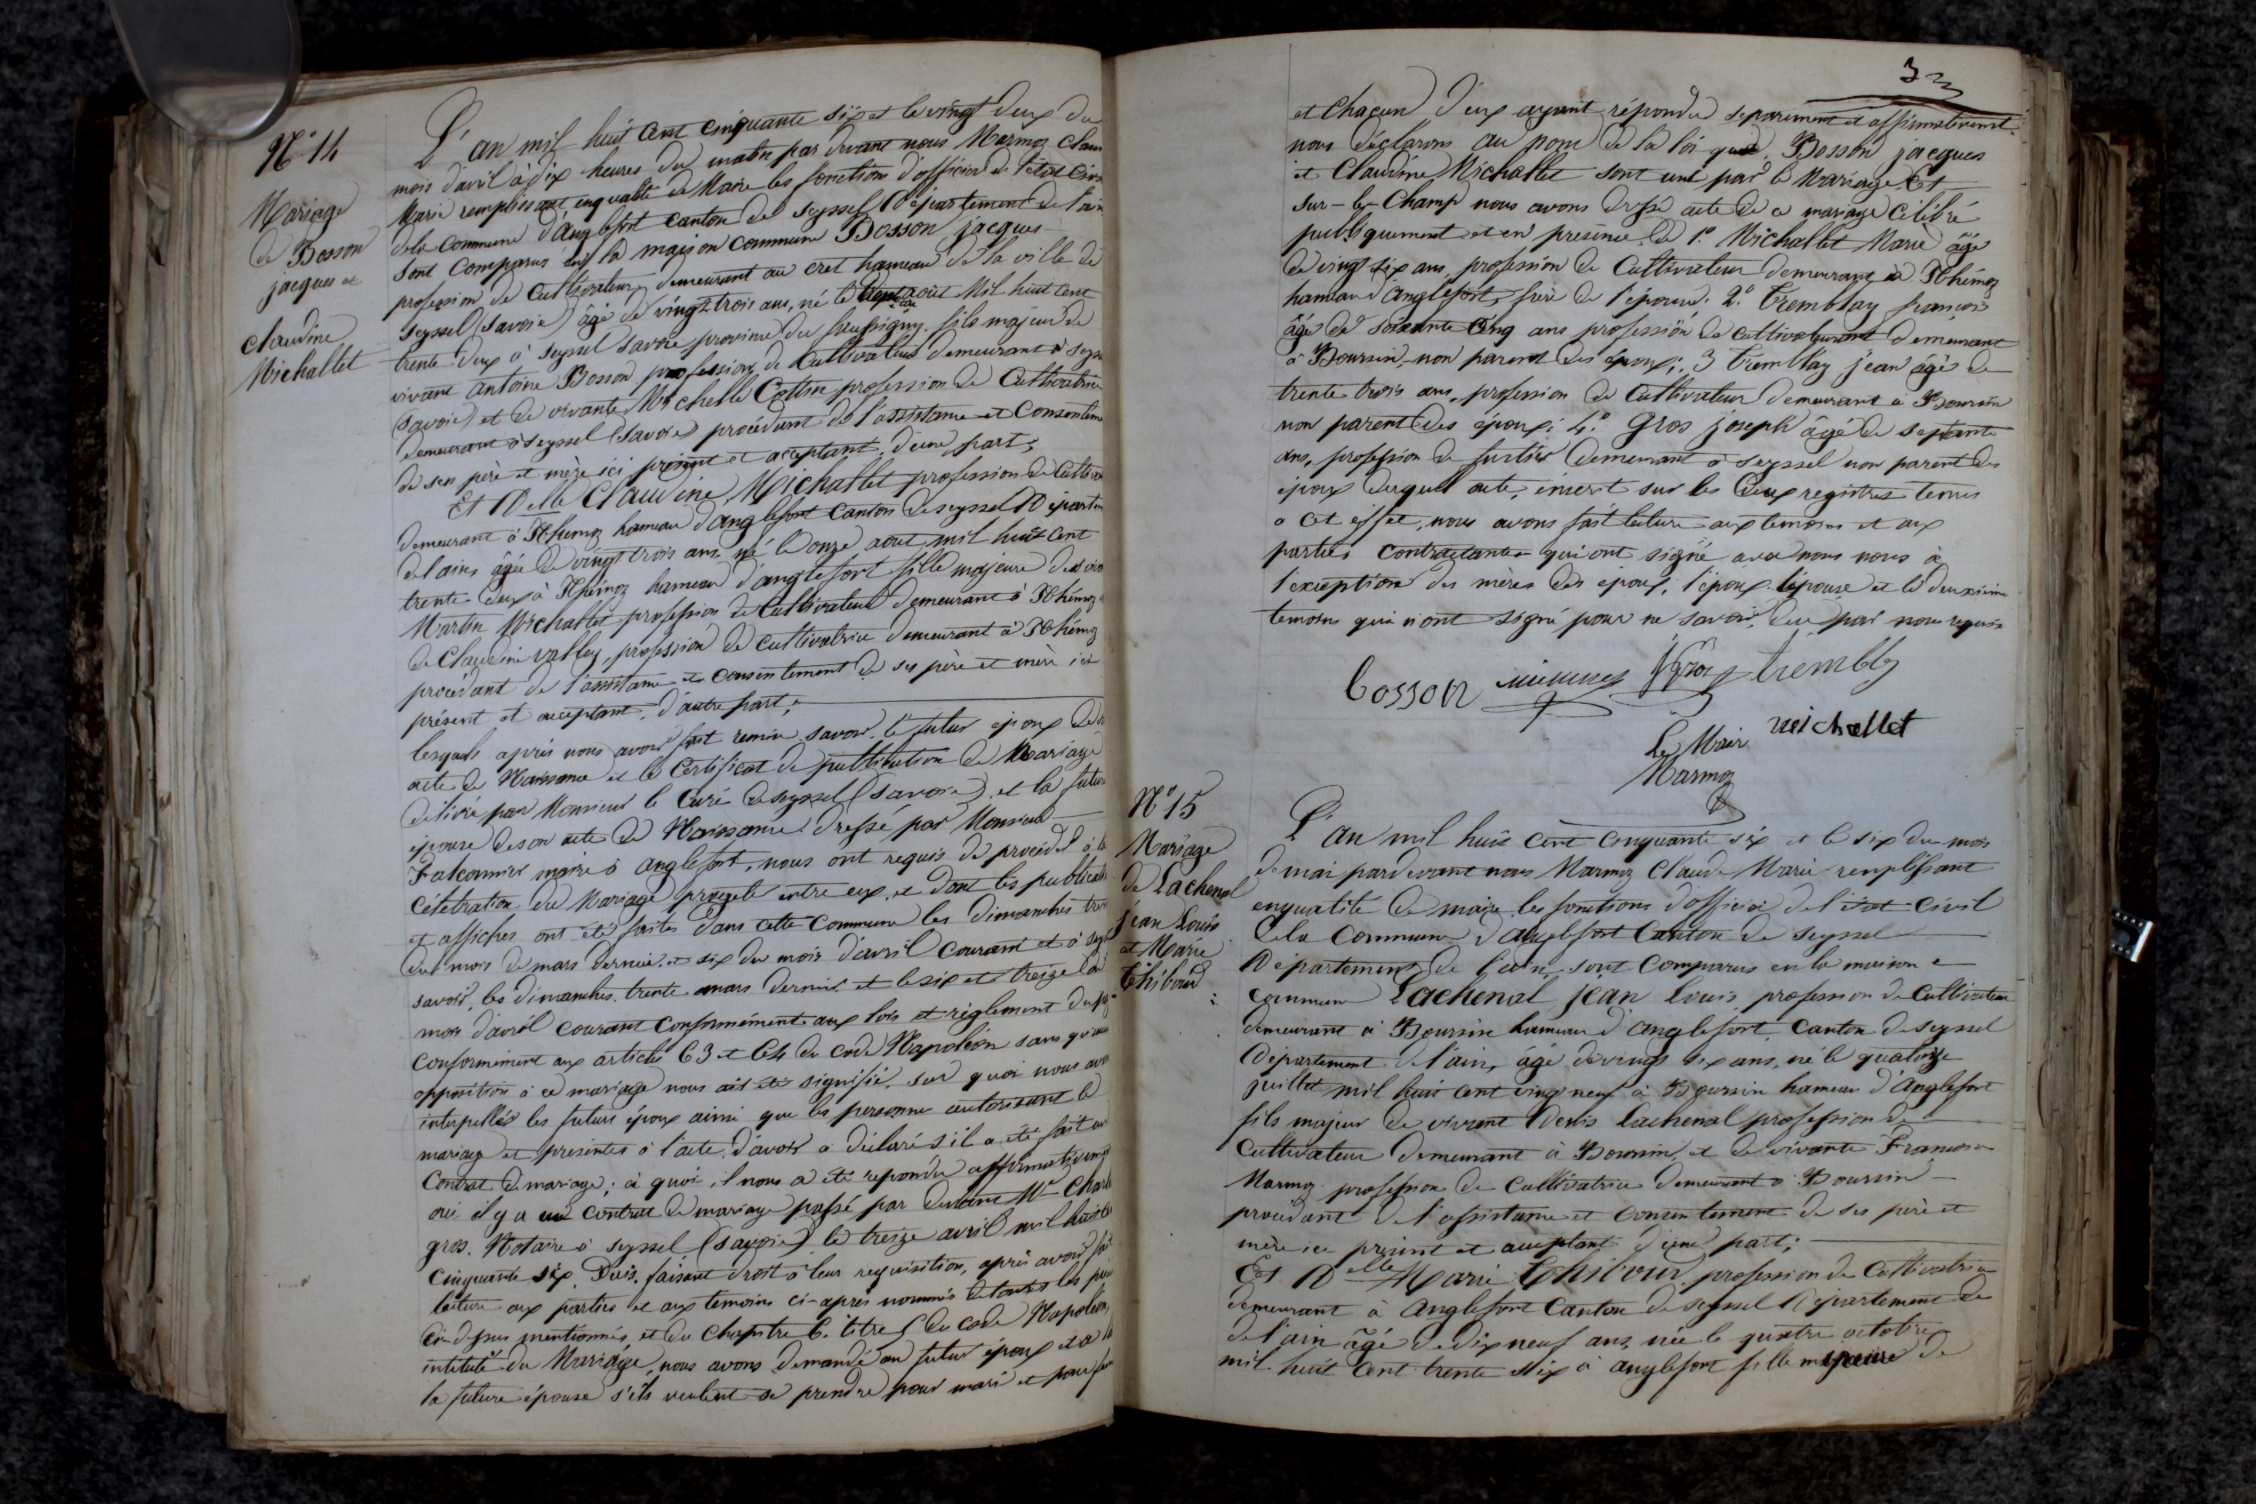 N° 14
Mariage
de Bosson
jacques et
claudine
Michallet
L'an mil huit cent cinquante six et le vingt deux du
mois d'avril à dix heures du matin par devant nous Marmoz Clau
Marie remplissant en qualité de Maire les fonctions d'officier de l'etat Civil
de la commune d'anglefort canton de seyssel Département de l'ain
sont comparus en la maison commune Bosson jacques
profession de cultivateur demeurant au cret hameau de la ville de
seyssel (savoie) âgé de vingt trois ans, né le août Mil huit cent
trente deux à seyssel savoie province du faussigny fils majeur de
vivant antoine Bosson profession de cultivateur demeurant à seyss
(savoie) et de vivante Michelle Collin profession de Cultivatrice
demeurant à seyssel (savoie) procédant de l'assistance et consenteme
de ses père et mère ici présent et acceptant d'une part;
Et Delle Claudine Michallet profession de Cultiva
demeurant à Rhémoz hameau d'anglefort canton de seyssel Départem
de l'ain âgée de vingt trois ans né le onze aout mil huit cent
trente deux à Rhémoz hameau d'anglefort fille majeure de viv
Martin Michallet profession de Cultivateur demeurant à Rhémoz
de Claudine valley, profession de cultivatrice demeurant à Rhémoz
procédant de l'assistance et consentement de ses père et mère ici
présent et acceptant d'autre part;
lesquels après nous avoir fait remise savoir le futur epoux de
acte de Naissance et le Certificat de publication de Mariage
délivré par Monsieur le Curé de seyssel (savoie) et la futur
épouse de son acte de Naissance dressé par Monsieur
Falconnier maire à anglefort, nous ont requis de procéder à la
Célébration du Mariage projeté entre eux, et dont les publicat
et affiches ont été faites dans cette Commune les dimanches tre
du mois de mars dernier et six du mois d'avril courant et à seys
savoir, les dimanches trente mars dernier et le six et treize du
mois d'avril courant conformément aux lois et règlement du
conformément aux articles 63 et 64 du code Napoléon sans qu'auc
opposition à ce mariage nous ait été signifié, sur quoi nous av
interpellés les futurs époux ainsi que les personne autorisant le
mariage et présentes à l'acte, d'avoir à déclaré s'il a été fait un
contrat de mariage; à quoi il nous a été répondu affirmativement
oui il y a un contrat de mariage passé par devant Me Charl
gros. Notaire à seyssel (savoie) le treize avril mil huit ce
cinquante six. Puis, faisant droit à leur requisition, après avoir fait
lecture aux parties et aux témoins ci-après nommés de toutes les pie
ci-dessus mentionnés, et du Chapitre 6. titre 5 du code Napoléon,
intitulé du Mariage, nous avons demandé au futur époux et à
la future épouse s'ils veulent se prendre pour mari et pour fem
32
et chacun d'eux ayant répondu separement et affirmativement
nous déclarons au nom de la loi que Bosson jacques
et Claudine Michallet sont uni par le Mariage. Et
sur-le-Champ nous avons dressé acte de ce mariage Célébré
publiquement et en présence de 1° Michallet Marie âgé
de vingt six ans, profession de Cultivateur demeurant à Rhémoz
hameau d'anglefort, frère de l'épouse; 2° Tremblay françois
âgé de soixante Cinq ans profession de cultivateur demeurant
à Boursin, non parent des époux; 3 Tremblay jean âgé de
trente trois ans, profession de Cultivateur demeurant à Boursin
non parent des époux; 4° Gros joseph âgé de septante
ans, profession de demeurant à seyssel non parent des
époux duquel acte, inscrit sur les deux registres tenus
à cet effet, nous avons fait lecture aux temoins et aux
parties contractantes qui ont signé avec nous nous à
l'exception des mères des époux, l'époux l'épouse et le deuxième
temoins qui n'ont signé pour ne savoir, de ce par nous requis
bosson Gros trembly
michallet
Le Mair
Marmoz
N° 15
Mariage
de Lachenal
jean Louis
et Marie
Thiboud
L'an mil huit cent cinquante six et le six du mois
de mai pardevant nous Marmoz Claude Marie remplissant
enqualité de maire les fonctions d'officier de l'état civil
de la commune d'anglefort Canton de seyssel
Département de l'ain, sont Comparus en la maison
commune Lachenal jean Louis profession de Cultivateur
demeurant à Boursin hameau d'anglefort, canton de seyssel
Département de l'ain, âgé de vingt six ans, né le quatorze
juillet mil huit cent vingt neuf à Boursin hameau d'anglefort
fils majeur de vivant Denis Lachenal profession de
Cultivateur demeurant à Boursin et de vivante Françoise
Marmoz profession de Cultivatrice demeurant à Boursin
procédant de l'assistance et consentement de ses père et
mère ici présent et acceptant d'une part;
Et Delle Marie Thiboud profession de Cultivatrice
demeurant à Anglefort Canton de seyssel Département de
de l'ain âgé de dix neuf ans, née le quatre octobre
mil huit cent trente six à anglefort fille mineure de